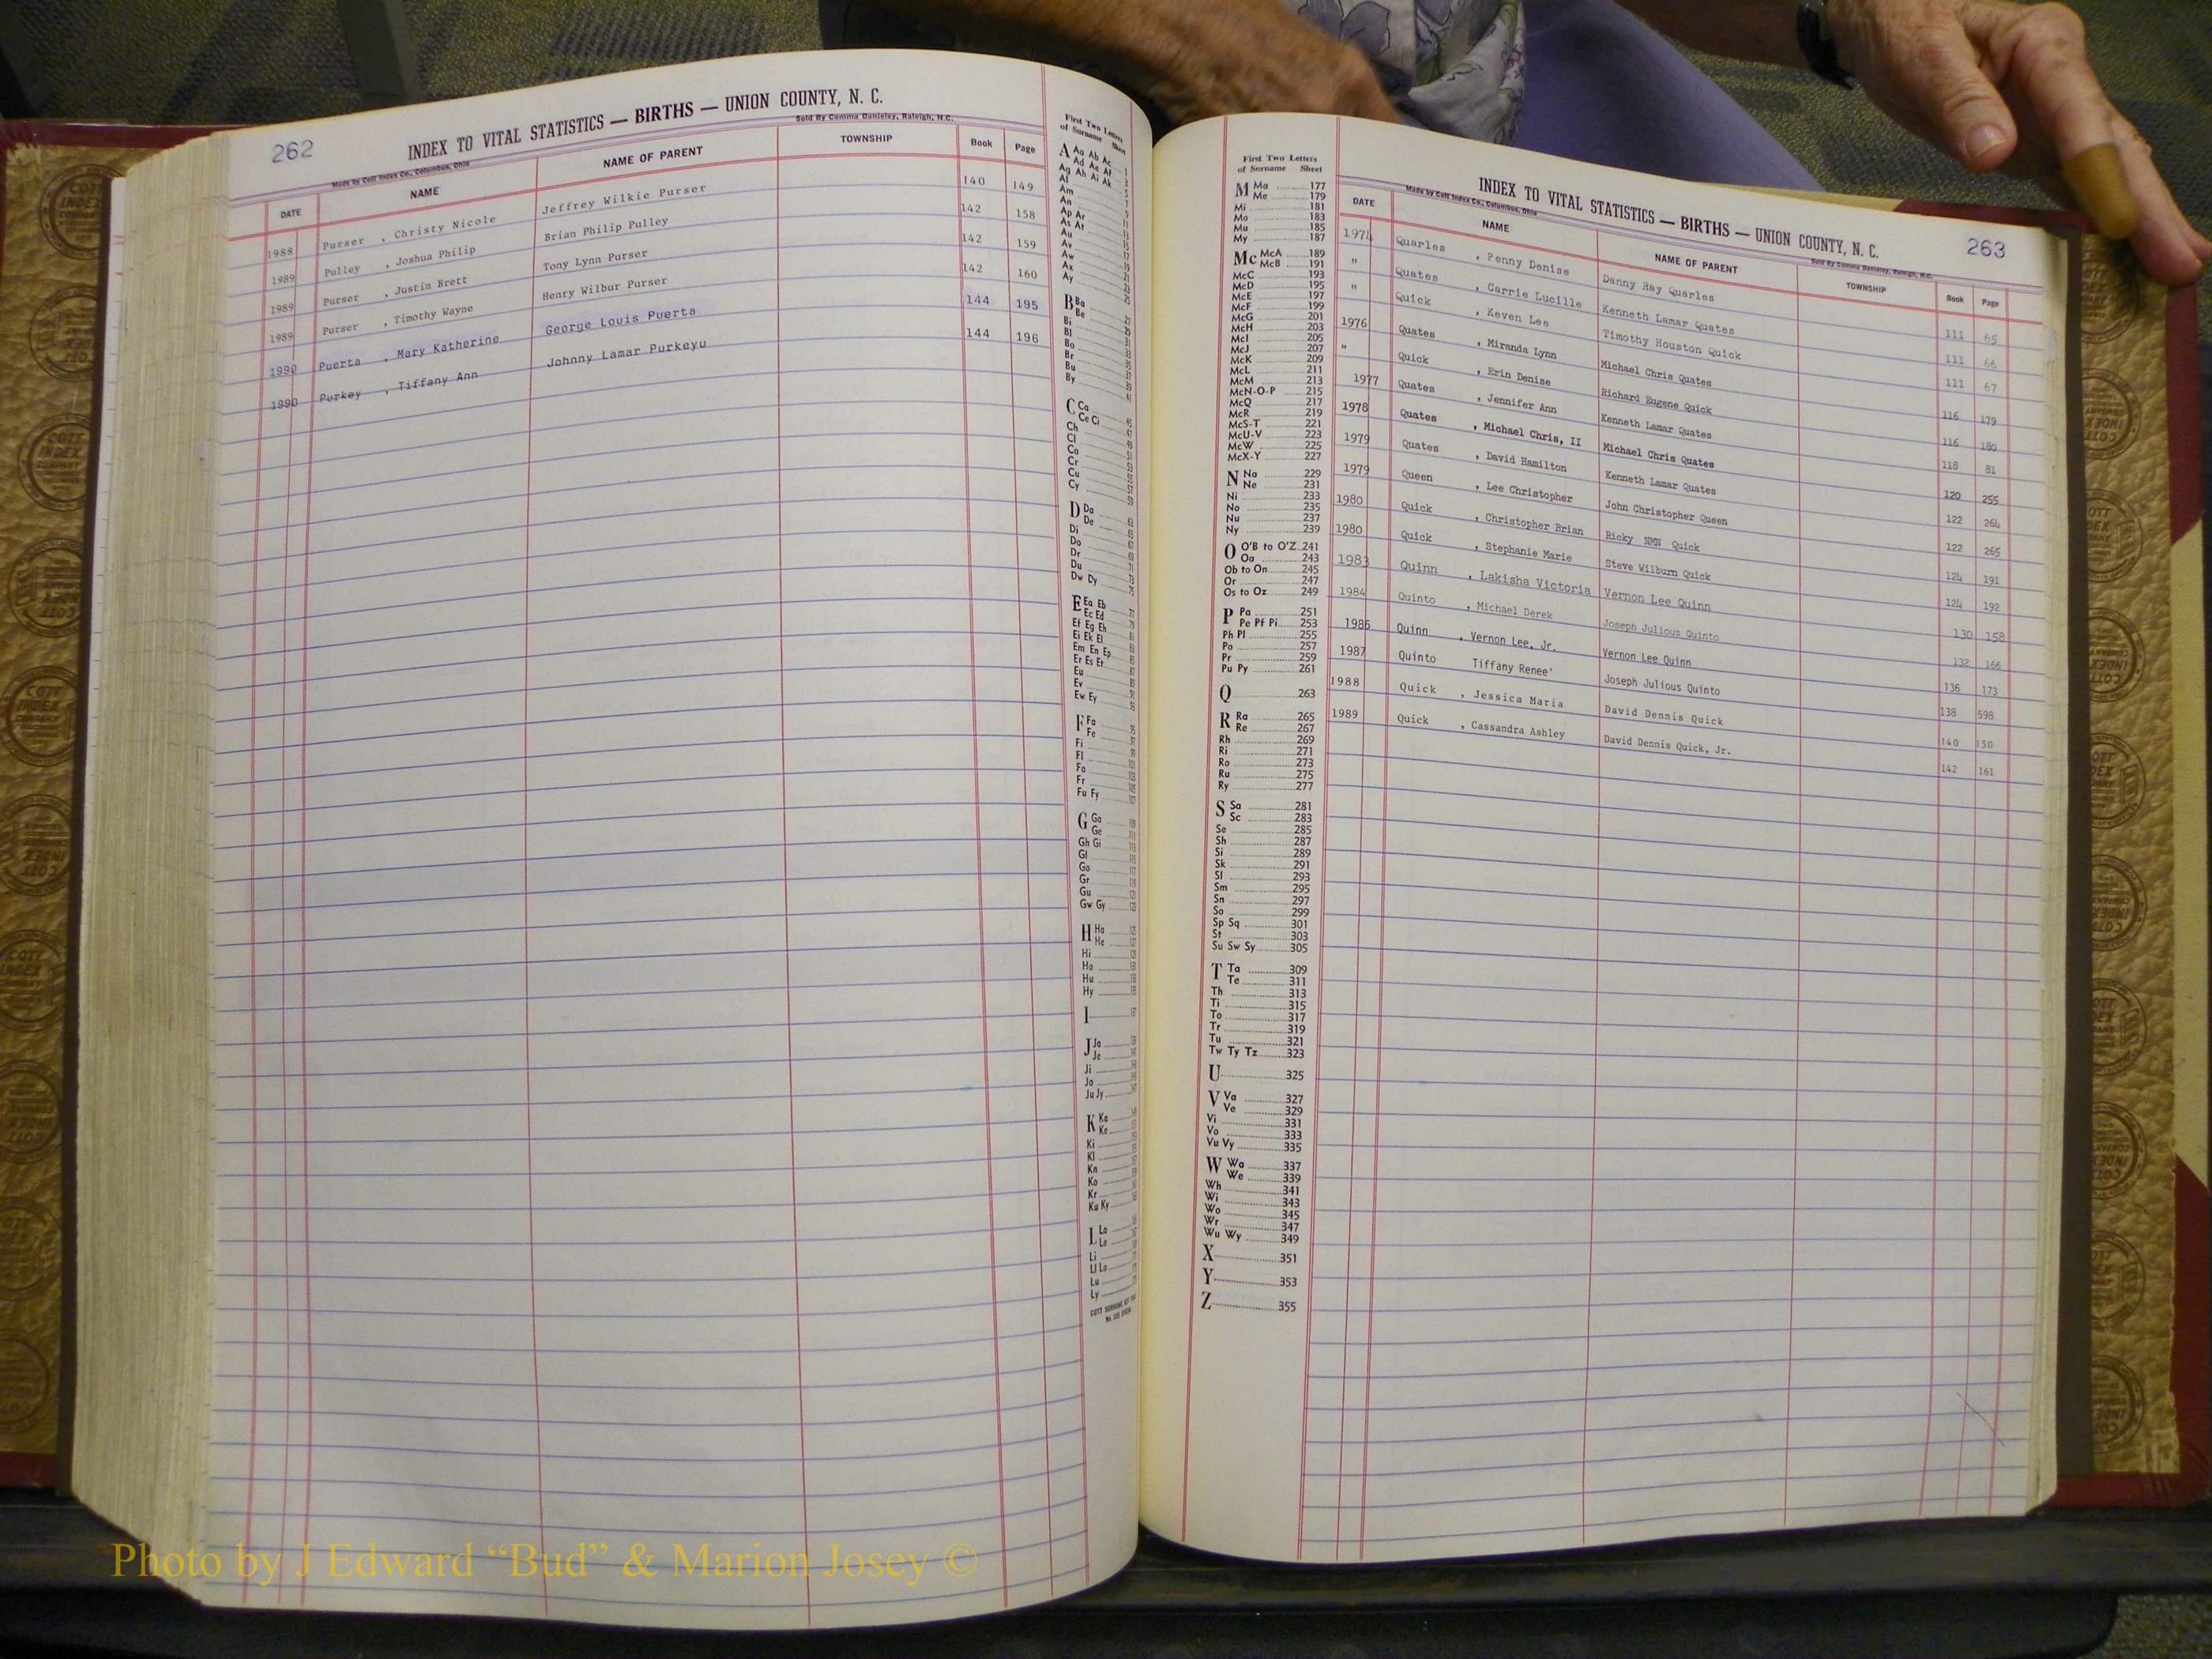 262
INDEX TO VITAL STATISTICS — BIRTHS — UNION COUNTY, N. C.
Made by Cott Index Co., Columbus, Ohio
Sold By Comma Danieley, Raleigh, N.C.
DATE NAME NAME OF PARENT TOWNSHIP Book Page
1988 Purser , Christy Nicole Jeffrey Wilkie Purser 140 149
1989 Pulley , Joshua Philip Brian Philip Pulley 142 158
1989 Purser , Justin Brett Tony Lynn Purser 142 159
1989 Purser , Timothy Wayne Henry Wilbur Purser 142 160
1990 Puerta , Mary Katherine George Louis Puerta 144 195
1990 Purkey , Tiffany Ann Johnny Lamar Purkeyu 144 196
First Two Letters
of Surname Sheet
A Aa Ab Ac
Ad Ae Af
Ag Ah Ai Ak
Al
Am
An
Ap Ar
As At
Au
Av
Aw
Ax
Ay
B Ba
Be
Bi
Bl
Bo
Br
Bu
By
C Ca
Ce Ci
Ch
Cl
Co
Cr
Cu
Cy
D Da
De
Di
Do
Dr
Du
Dw Dy
E Ea Eb
Ec Ed
Ef Eg Eh
Ei Ek El
Em En Ep
Er Es Et
Eu
Ev
Ew Ey
F Fa
Fe
Fi
Fl
Fo
Fr
Fu Fy
G Ga
Ge
Gh Gi
Gl
Go
Gr
Gu
Gw Gy
H Ha
He
Hi
Ho
Hu
Hy
I
J Ja
Je
Ji
Jo
Ju Jy
K Ka
Ke
Ki
Kl
Kn
Ko
Kr
Ku Ky
L La
Le
Li
Ll Lo
Lu
Ly
First Two Letters
of Surname Sheet
M Ma 177
Me 179
Mi 181
Mo 183
Mu 185
My 187
Mc McA 189
McB 191
McC 193
McD 195
McE 197
McF 199
McG 201
McH 203
McI 205
McJ 207
McK 209
McL 211
McM 213
McN-O-P 215
McQ 217
McR 219
McS-T 221
McU-V 223
McW 225
McX-Y 227
N Na 229
Ne 231
Ni 233
No 235
Nu 237
Ny 239
O O'B to O'Z 241
Oa 243
Ob to On 245
Or 247
Os to Oz 249
P Pa 251
Pe Pf Pi 253
Ph Pl 255
Po 257
Pr 259
Pu Py 261
Q 263
R Ra 265
Re 267
Rh 269
Ri 271
Ro 273
Ru 275
Ry 277
S Sa 281
Sc 283
Se 285
Sh 287
Si 289
Sk 291
Sl 293
Sm 295
Sn 297
So 299
Sp Sq 301
St 303
Su Sw Sy 305
T Ta 309
Te 311
Th 313
Ti 315
To 317
Tr 319
Tu 321
Tw Ty Tz 323
U 325
V Va 327
Ve 329
Vi 331
Vo 333
Vu Vy 335
W Wa 337
We 339
Wh 341
Wi 343
Wo 345
Wr 347
Wu Wy 349
X 351
Y 353
Z 355
INDEX TO VITAL STATISTICS — BIRTHS — UNION COUNTY, N. C. 263
Made by Cott Index Co., Columbus, Ohio
Sold By Comma Danieley, Raleigh, N.C.
DATE NAME NAME OF PARENT TOWNSHIP Book Page
1974 Quarles , Penny Denise Danny Ray Quarles 111 65
" Quates , Carrie Lucille Kenneth Lamar Quates 111 66
" Quick , Keven Lee Timothy Houston Quick 111 67
1976 Quates , Miranda Lynn Michael Chris Quates 116 179
" Quick , Erin Denise Richard Eugene Quick 116 180
1977 Quates , Jennifer Ann Kenneth Lamar Quates 118 81
1978 Quates , Michael Chris, II Michael Chris Quates 120 255
1979 Quates , David Hamilton Kenneth Lamar Quates 122 264
1979 Queen , Lee Christopher John Christopher Queen 122 265
1980 Quick , Christopher Brian Ricky NMN Quick 124 191
1980 Quick , Stephanie Marie Steve Wilburn Quick 124 192
1983 Quinn , Lakisha Victoria Vernon Lee Quinn 130 158
1984 Quinto , Michael Derek Joseph Julious Quinto 132 166
1986 Quinn , Vernon Lee, Jr. Vernon Lee Quinn 136 173
1987 Quinto Tiffany Renee' Joseph Julious Quinto 138 598
1988 Quick , Jessica Maria David Dennis Quick 140 150
1989 Quick , Cassandra Ashley David Dennis Quick, Jr. 142 161
Photo by J Edward “Bud” & Marion Josey ©